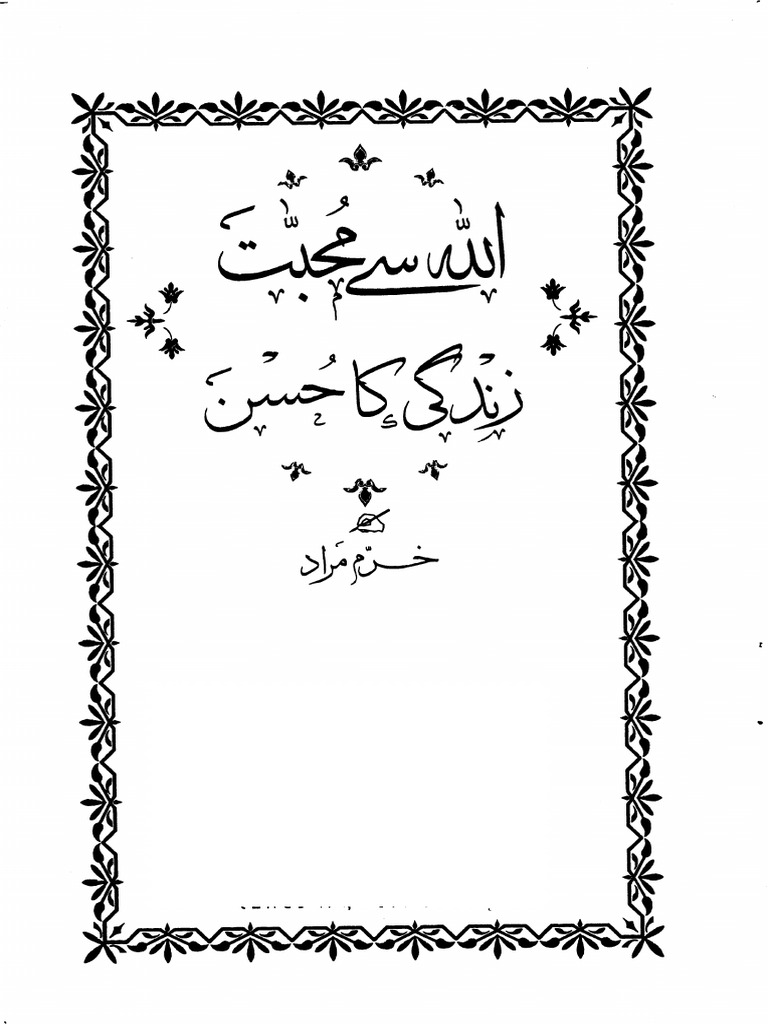 اللہ سے مُحبّت
زندگی کا حُسن
خرّم مراد